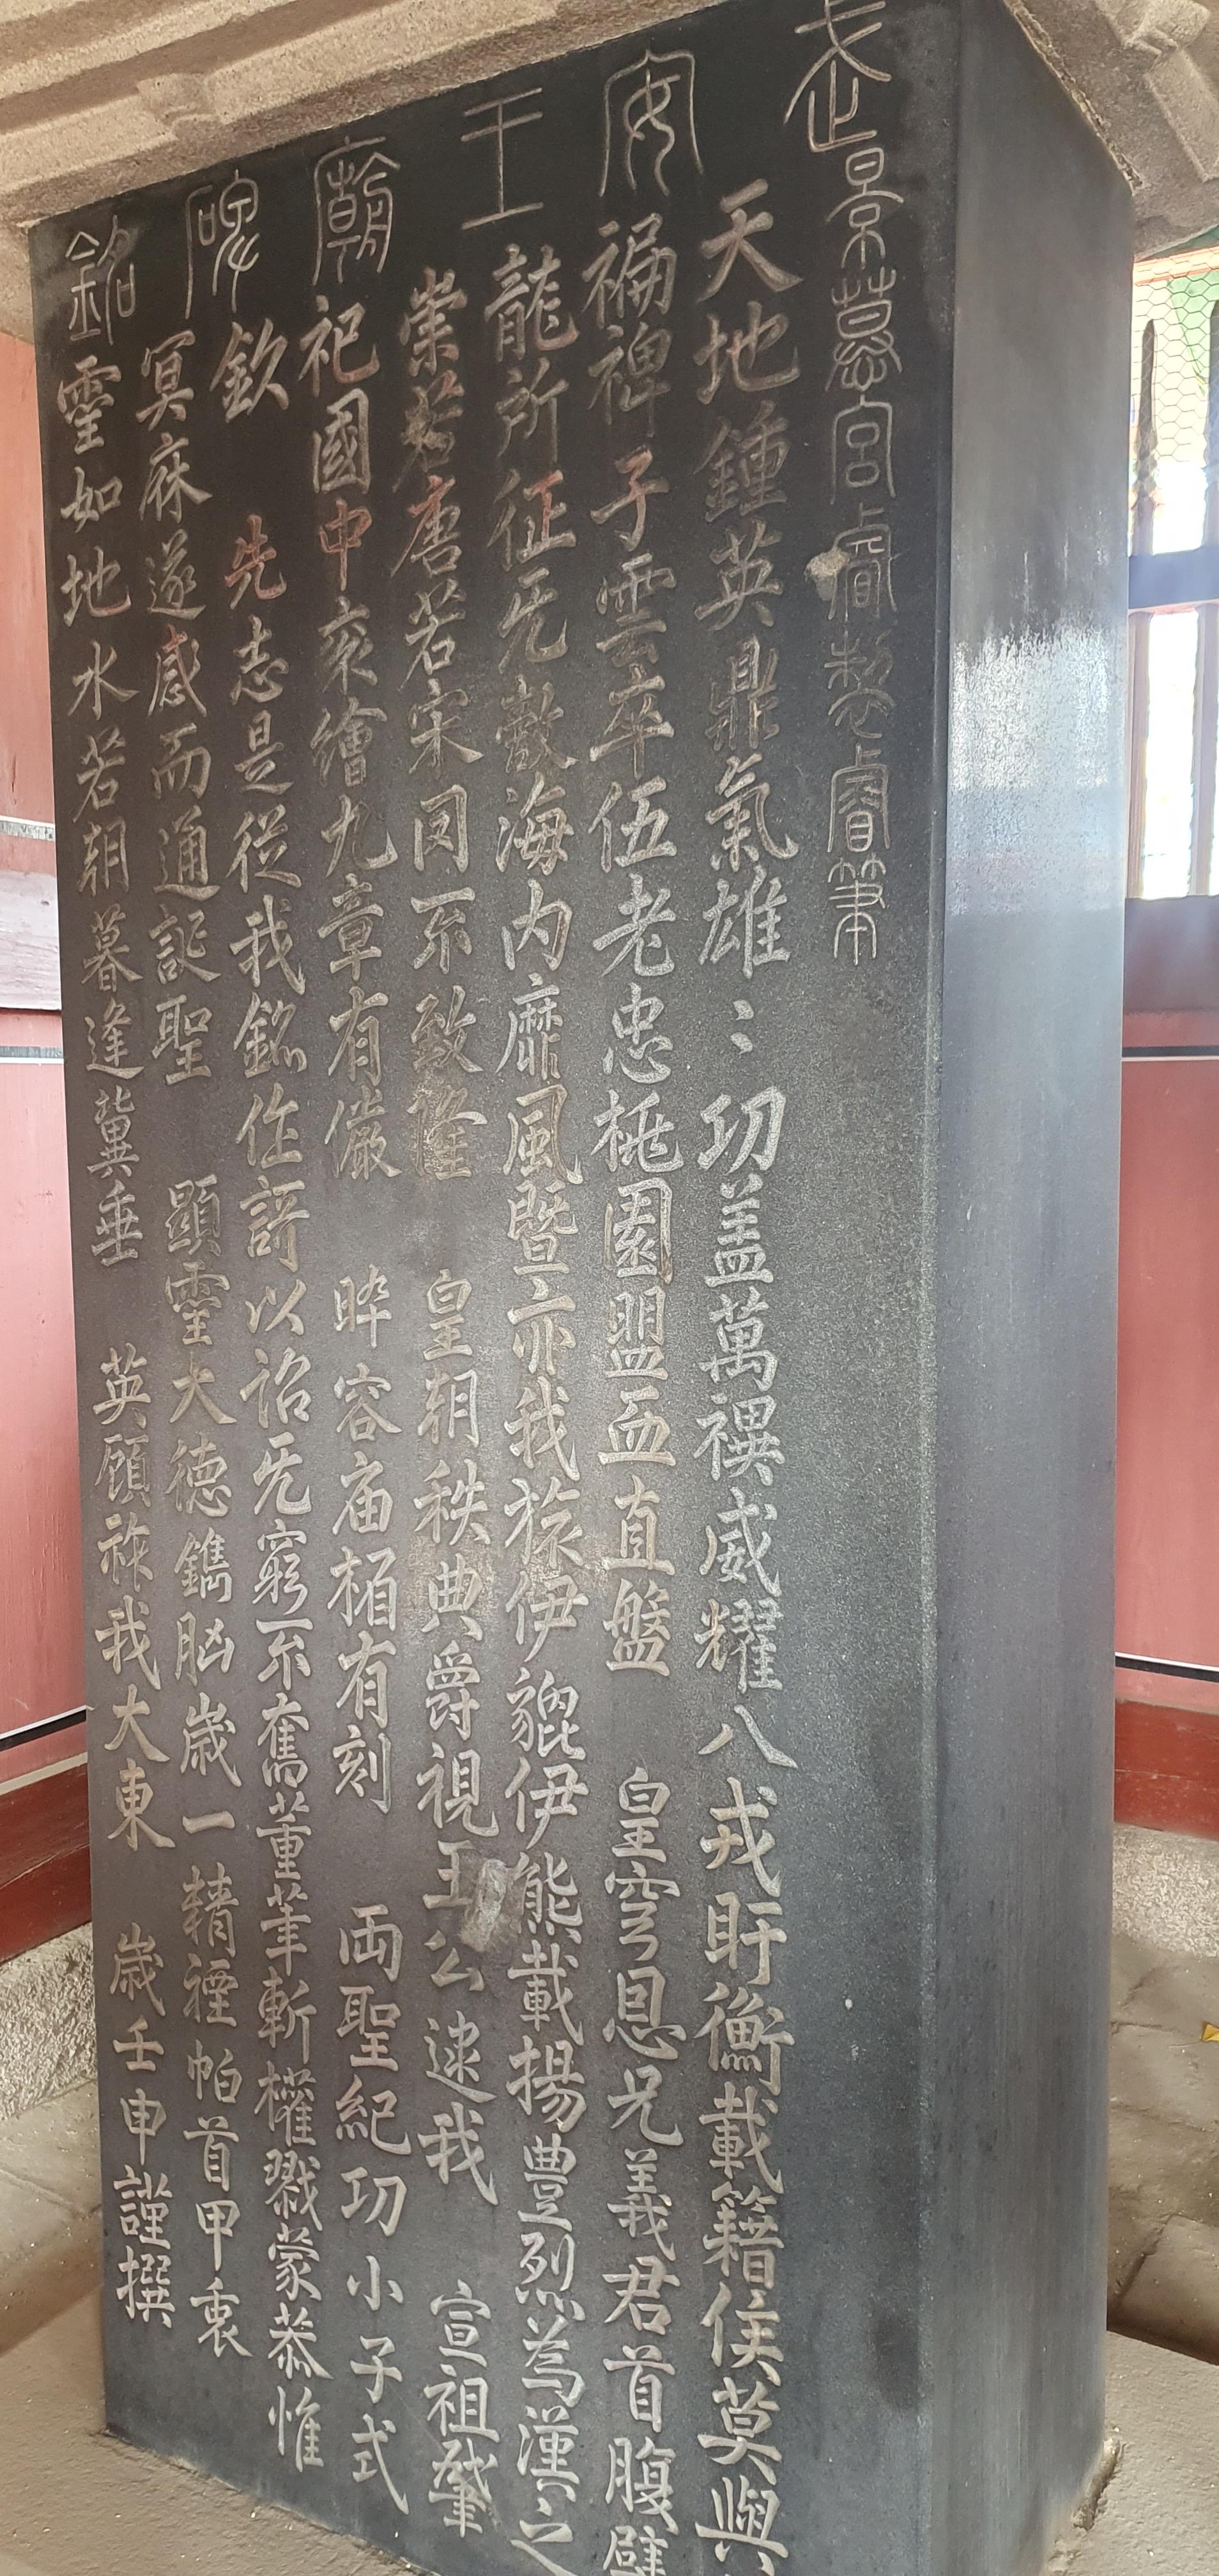 武安王廟碑銘
景慕宮睿製睿筆
天地鍾英鼎氣雄〻功盖萬禩威耀八戎盱衡載籍侯莫與
褊裨子雲卒伍老忠桃園盟血直盤 皇穹恩兄義君首腹壁
龍所征旡敵海内靡風暨亦我旅伊貔伊熊載揚豊烈為漢之
崇若唐若宋罔不致隆 皇朝秩典爵視王公逮我 宣祖肇
祀國中衮繪九章有儼 睟容庙楣有刻 両聖紀功小子式
欽 先志是從我銘作詩以詒旡窮不奮董筆斬權戮蒙恭惟
冥庥遂感而通誕聖 顯霊大德鐫䏰歲一精禋帕首甲裏
霊如地水若朝暮逢冀垂 英顧祚我大東 歲壬申謹撰